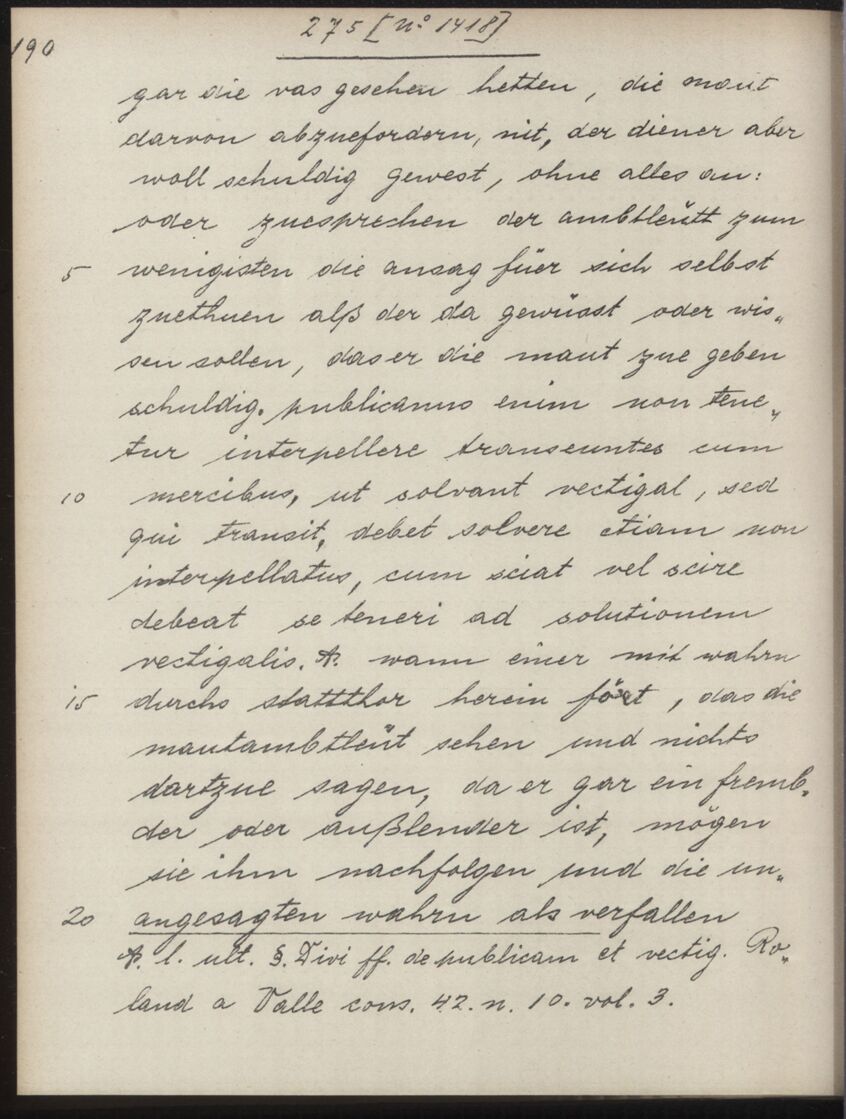 190
275 [No 1418]
gar die vas gesehen hetten, die maut
darvon abzuefordern, nit, der diener aber
woll schuldig gewest, ohne alles an:
oder zuesprechen der ambtleütt zum
5 wenigisten die ansag füer sich selbst
zuethuen alß der da gewüsst oder wis„
sen sollen, das er die maut zue geben
schuldig. publicanus enim non tene„
tur interpellere transeuntes cum
10 mercibus, ut solvant vectigal, sed
qui transit, debet solvere etiam non
interpellatus, cum sciat vel scire
debeat se teneri ad solutionem
vectigalis. A. wann einer mit wahrn
15 durchs stattthor herein fört, das die
mautambtleüt sehen und nichts
dartzue sagen, da er gar ein fremb„
der oder außlender ist, mögen
sie ihm nachfolgen und die un„
20 angesagten wahrn als verfallen
A. l. ult. §. Divi ff. de publicam et vectig. Ro„
land a Valle cons. 42. n. 10. vol. 3.